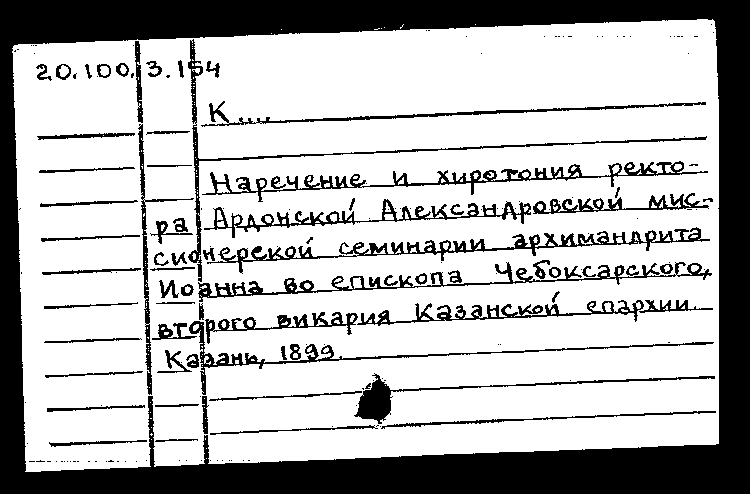 20.100.3.154
К....
Наречение и хиротония ректо-
ра Ардонской Александровской мис-
сионерской семинарии архимандрита
Иоанна во епископа Чебоксарского,
второго викария Казанской епархии.
Казань, 1899.